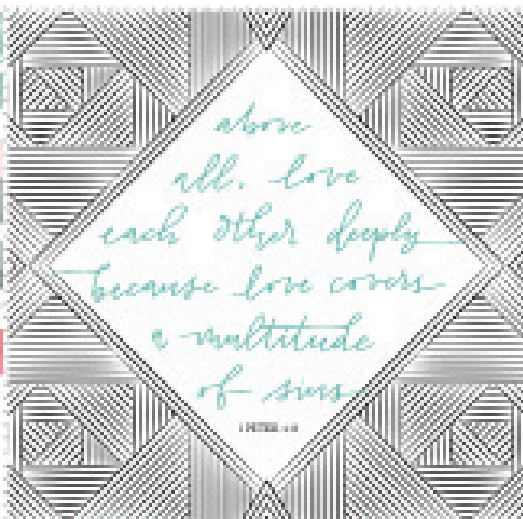 above
all, love
each other deeply
because love covers
a multitude
of sins
1 PETER 4:8